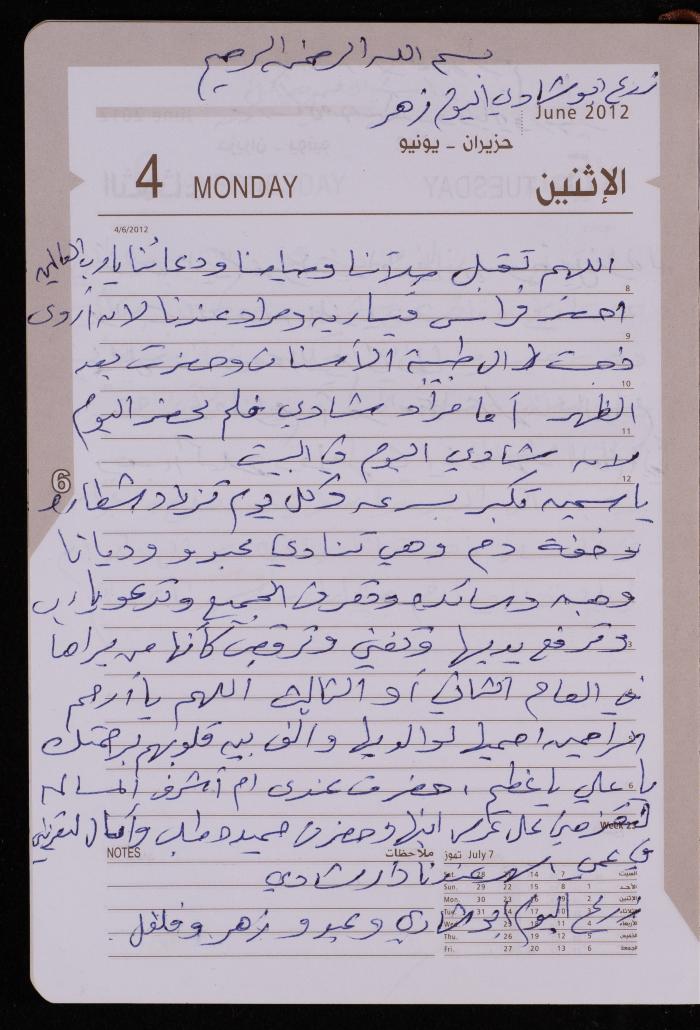 بسم الله الرحمن الرحيم
زرع ابو شادي اليوم زهر
June 2012
حزيران - يونيو
4 MONDAY الإثنين
4/6/2012
اللهم تقبل صلاتنا وصيامنا ودعائنا يا رب العالمين
8
احضر فراس ومراد عندنا لانه أروى
9
ذهبت الطبيبة الأسنان وحضرت بعد
10
الظهر أما مراد شادي فلم يحضر اليوم
11
لانه شادي اليوم في البيت
12
6
ياسمينه تكبر بسرعه وكل يوم تزداد شطاره
وخفة دم وهي تنادي عبدو وديانا
وتعرف الجميع وتدعو يا رب
3
وترفع يديها وتغني وترقص كأنها من يراها
في العام الثاني أو الثالث اللهم يا أرحم
الراحمين احميها لوالديها والف بين قلوبهم برحمتك
6
يا علي يا عظيم، حضرت عندي ام أشرف
Week 23
على عرس ابنها وحضرت وآمال
NOTES ملاحظات
July 7 تموز
في عمي عندنا دار شادي
Sat. 28 21 14 7 السبت
Sun. 29 22 15 8 1 الأحد
Mon. 30 23 16 9 2 الإثنين
Tue. 31 24 17 10 3 الثلاثاء
Wed. 25 18 11 4 الأربعاء
Thu. 26 19 12 5 الخميس
Fri. 27 20 13 6 الجمعة
زرع اليوم ابو شادي وعبدو زهر وفلفل